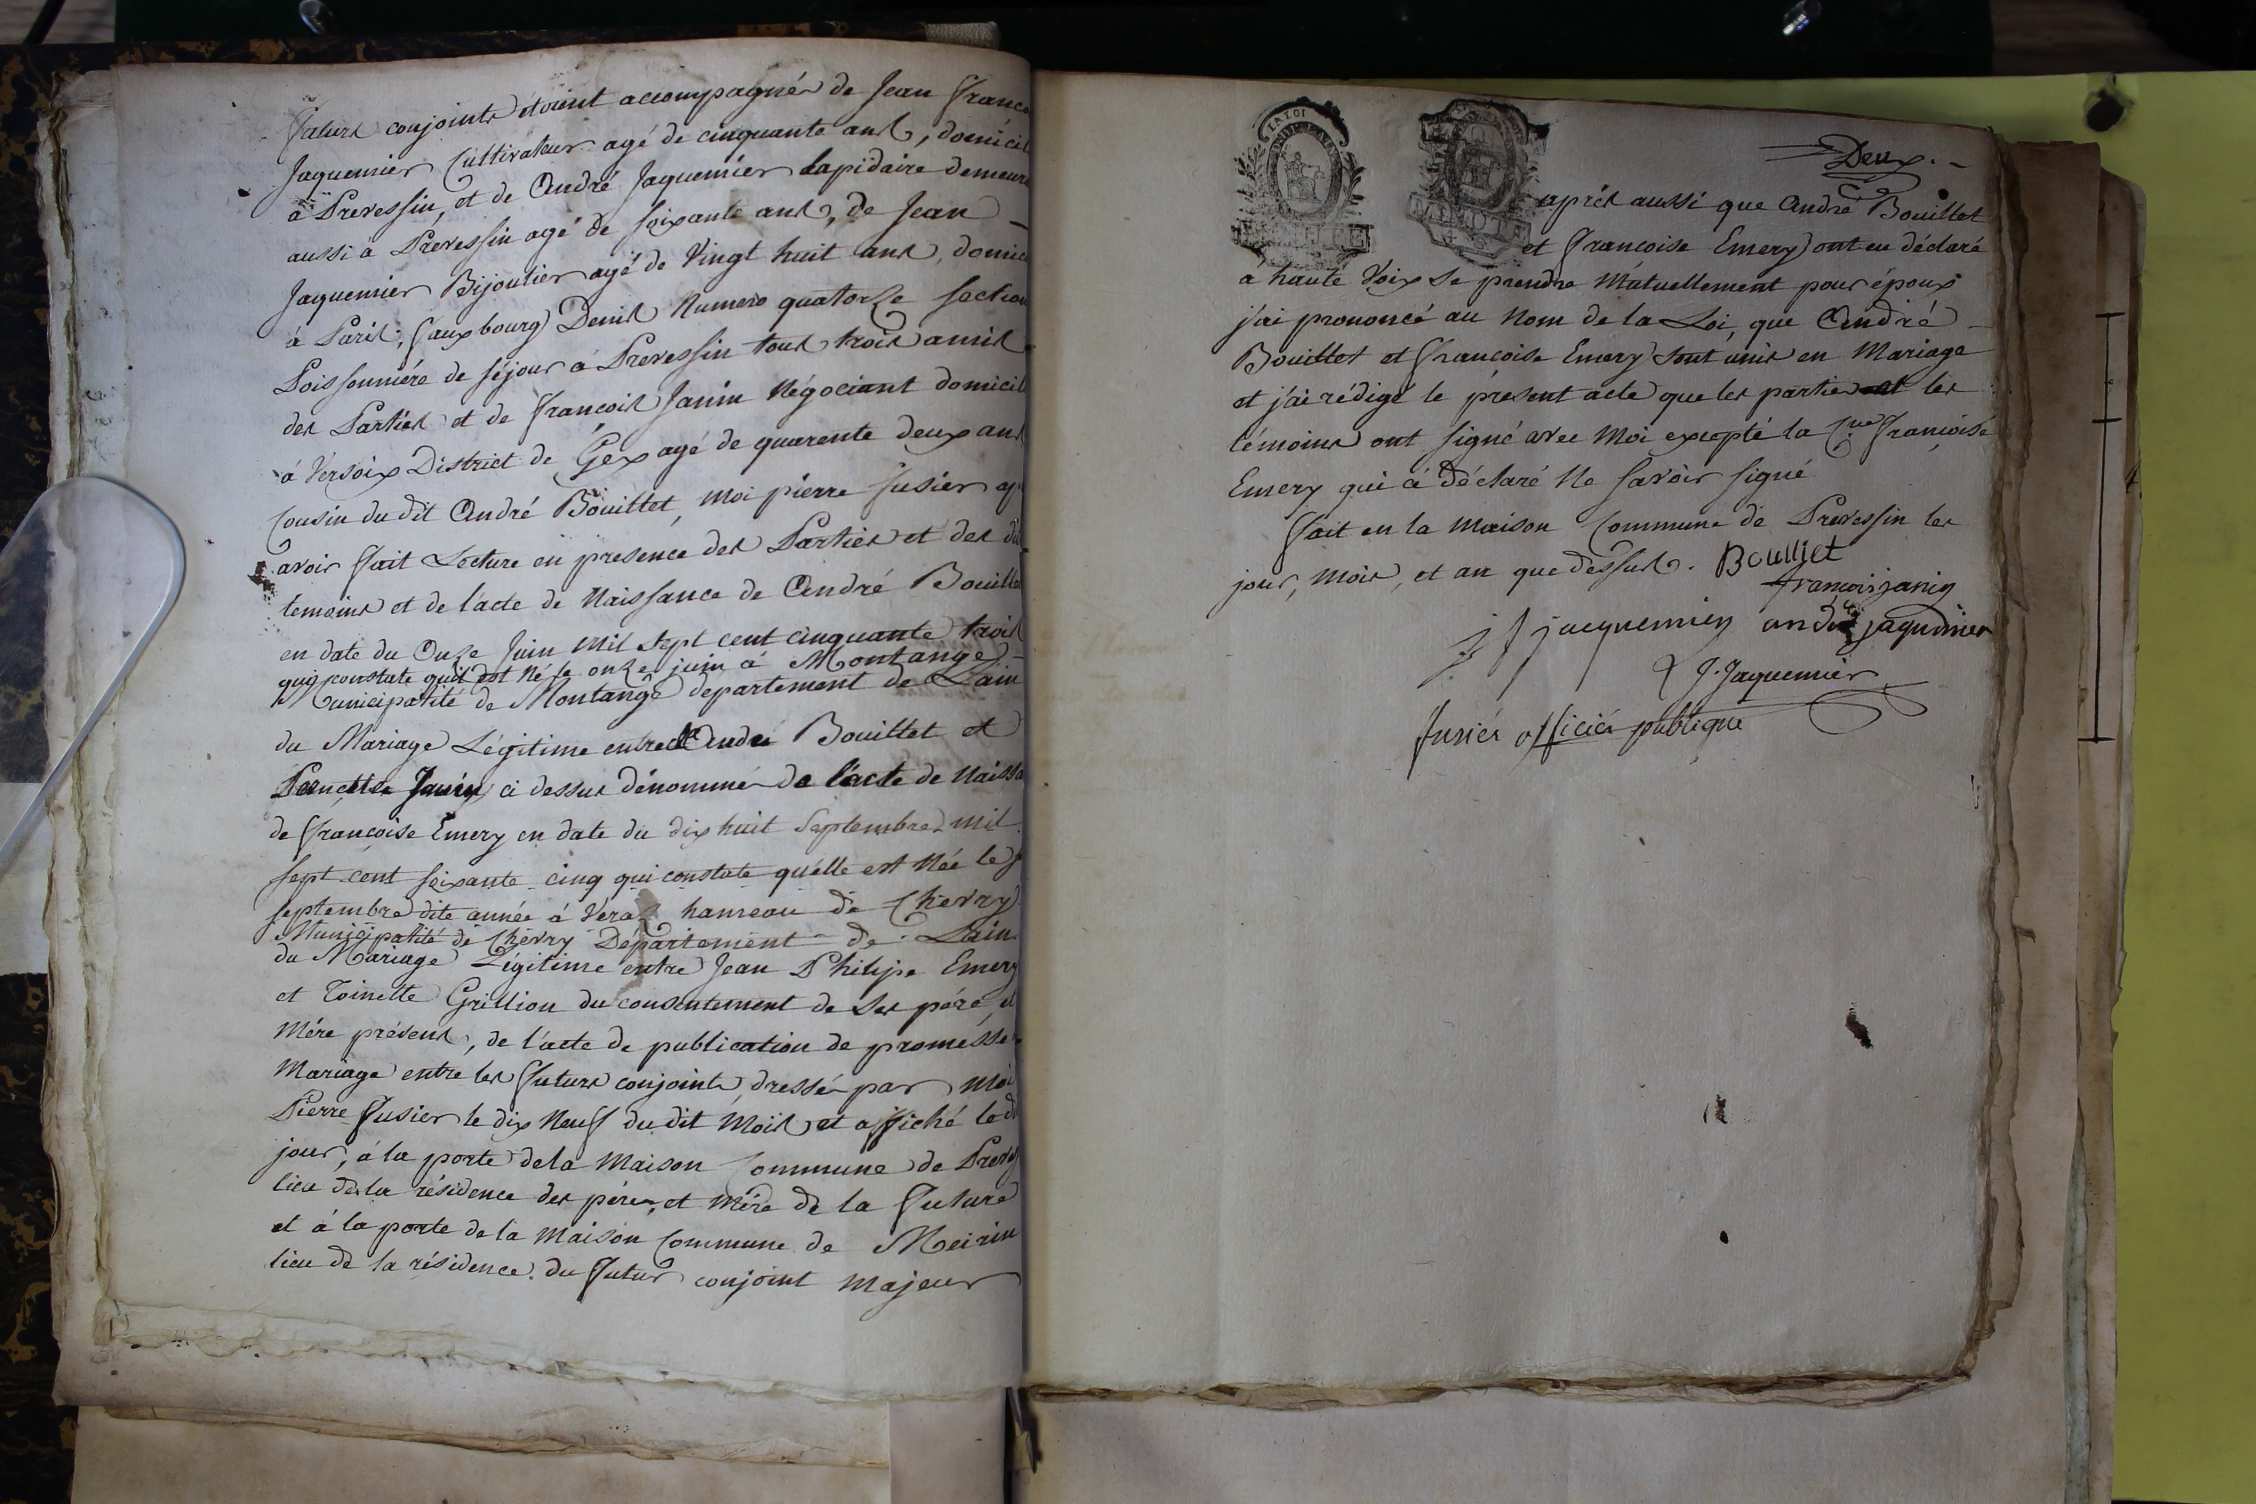 futurs conjoints étoient accompagnés de Jean Franco
Jaquemier Cultivateur agé de cinquante ans, domicil
à Prevessin, et de André Jaquemier Lapidaire demeura
aussi a Prevessin agé de soixante ans, de Jean
Jaquemier Bijoutier agé de Vingt huit ans, domici
à Paris, fauxbourg Denis Numero quatorze section
Poissonniére de séjour à Prevessin tous trois amis
des Parties et de François Janin Négociant domicil
à Versoix District de Gex agé de quarente deux ans
Cousin du dit André Bouillet, moi pierre fusier ap
avoir fait Lecture en presence des Parties et des d
temoins et de l'acte de Naissance de André Bouillet
en date du Onze Juin mil sept cent cinquante trois
qui constate quil est Né le onze juin à Montange
Municipalité de Montange departement de Lain
du Mariage Légitime entre André Bouillet et
Pernette Janin ci dessus dénommé de l'acte de Naissa
de françoise Emery en date du dix huit Septembre mil
sept cent soixante cinq qui constate quélle est Née le
septembre dite année à Véraz hameau de Chevry
Municipalité de Chevry Département de Lain
du Mariage Légitime entre Jean Philipe Emery
et Toinette Grillion du consentement de ses pére et
Mére présens, de l'acte de publication de promésse
Mariage entre les futurs conjoints dressé par moi
Pierre Fusier le dix Neuf du dit Mois et affiché le d
jour, à la porte de la Maison Commune de Preves
lieu de la résidence des péres et Mére de la future
et à la porte de la Maison Commune de Meirin
lieu de la résidence du futur conjoint majeur
LA LOI
Deux.
aprés aussi que André Bouillet
et francoise Emery ont eu déclaré
a haute Voix se prendre Mutuellement pour époux
j'ai prononcé au Nom de la Loi, que André
Bouillet et francoise Emery sont unis en Mariage
et j'ai rédigé le présent acte que les parties et les
témoins ont signé avec Moi excepté la Cne françoise
Emery qui à déclaré Ne savoir signé
fait en la Maison Commune de Prevessin les
jour, Mois, et an que dessus. Boulliet
francois janin
j f jacquemier andré jaqumier
J. Jaquemier
fusier officiér publique